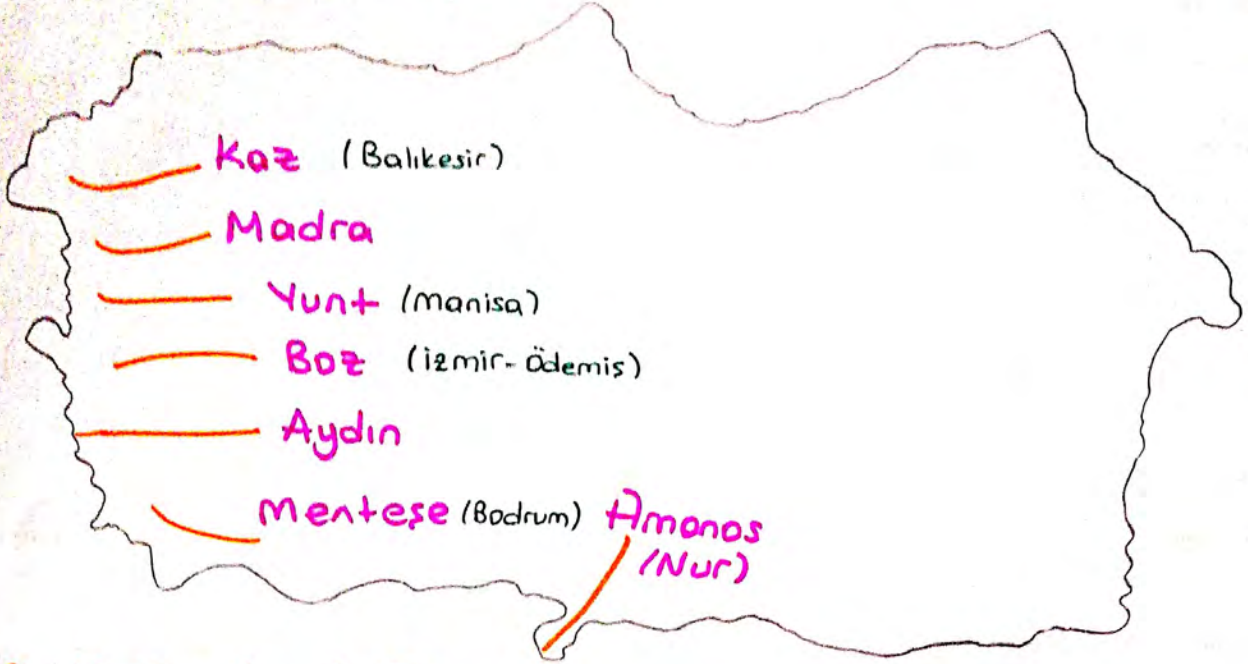 Kaz (Balıkesir)
Madra
Yunt (manisa)
Boz (izmir-Ödemiş)
Aydın
Menteşe (Bodrum)
Amanos
(Nur)